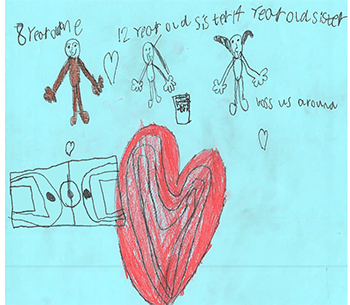 8 Year old me 12 Year old sister 14 Year old sister
boss us around